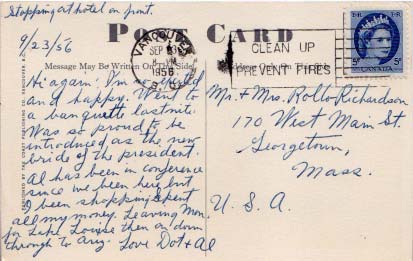 Stopping at hotel on front.
9/23/56
POST CARD
VANCOUVER
SEP
1956
CLEAN UP
PREVENT FIRES
E·R E·R
5¢ CANADA 5¢
Message May Be Written On This Side
Address Only On This Side
Hi again! I'm so excited
and happy. Went to
a banquette last nite.
Was so proud to be
introduced as the new
bride of the president.
Al has been in conference
since we been here but
I been shopping. Spent
all my money. Leaving Mon.
for Lake Louise then on down
through to Ariz. Love Dot & Al
Mr. & Mrs. Rollo Richardson
170 West Main St.
Georgetown,
Mass.
U. S. A.